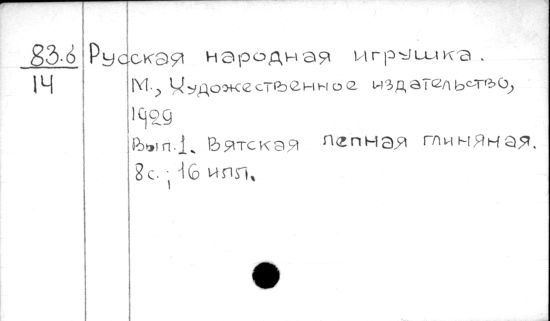 83.6 Русская народная игрушка.
14 М., Художественное издательство,
1929
Вып.1. Вятская лепная глиняная.
8с.; 16 илл.